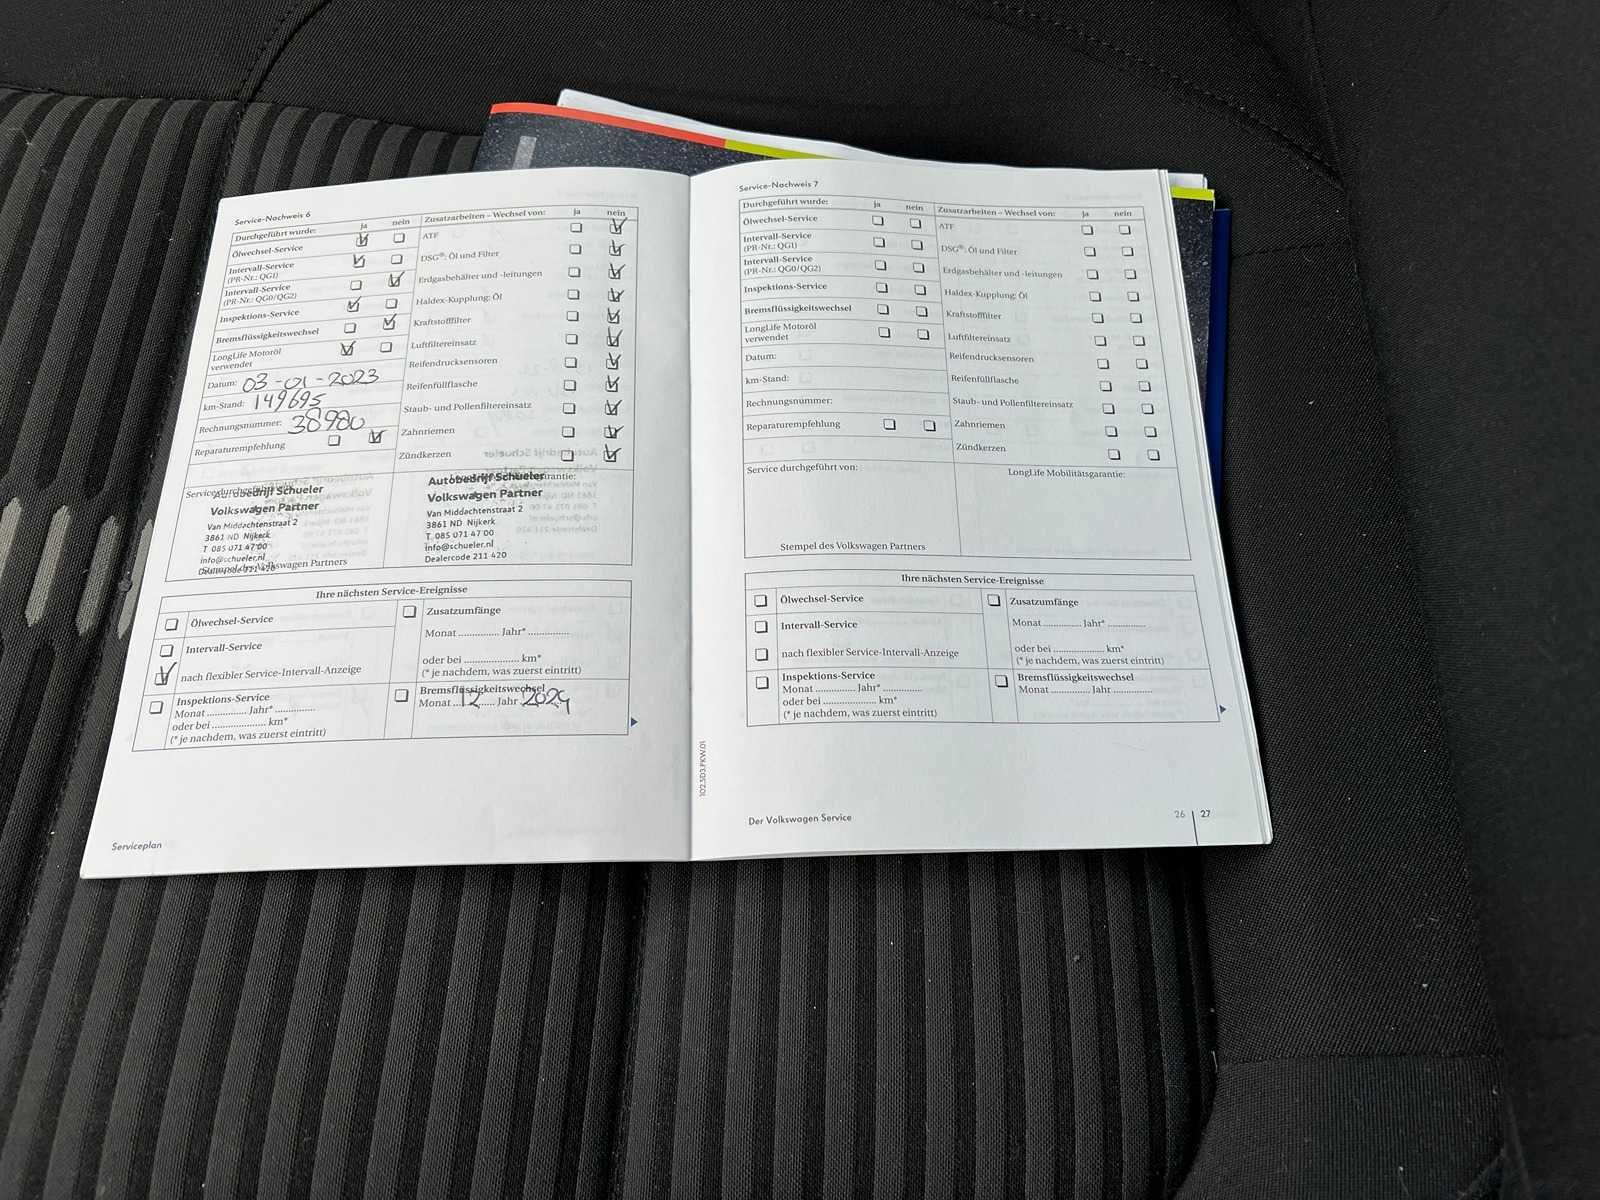 Service-Nachweis 6
Durchgeführt wurde: ja nein
Ölwechsel-Service
Intervall-Service
(PR-Nr.: QG1)
Intervall-Service
(PR-Nr.: QG0/QG2)
Inspektions-Service
Bremsflüssigkeitswechsel
LongLife Motoröl
verwendet
Datum: 03-01-2023
km-Stand: 149695
Rechnungsnummer: 38980
Reparaturempfehlung
Zusatzarbeiten – Wechsel von: ja nein
ATF
DSG®: Öl und Filter
Erdgasbehälter und -leitungen
Haldex-Kupplung: Öl
Kraftstofffilter
Luftfiltereinsatz
Reifendrucksensoren
Reifenfüllflasche
Staub- und Pollenfiltereinsatz
Zahnriemen
Zündkerzen
Service durchgeführt von:
Autobedrijf Schueler
Volkswagen Partner
Van Middachtenstraat 2
3861 ND Nijkerk
T 085 071 47 00
info@schueler.nl
Dealercode 211 420
Stempel des Volkswagen Partners
Autobedrijf Schueler
Volkswagen Partner
Van Middachtenstraat 2
3861 ND Nijkerk
T 085 071 47 00
info@schueler.nl
Dealercode 211 420
Ihre nächsten Service-Ereignisse
Ölwechsel-Service
Intervall-Service
nach flexibler Service-Intervall-Anzeige
Inspektions-Service
Monat ............... Jahr* ...............
oder bei .................... km*
(* je nachdem, was zuerst eintritt)
Zusatzumfänge
Monat ............... Jahr* ...............
oder bei .................... km*
(* je nachdem, was zuerst eintritt)
Bremsflüssigkeitswechsel
Monat 12 Jahr 2024
Serviceplan
102.5D3.PKW.01
Service-Nachweis 7
Durchgeführt wurde: ja nein
Ölwechsel-Service
Intervall-Service
(PR-Nr.: QG1)
Intervall-Service
(PR-Nr.: QG0/QG2)
Inspektions-Service
Bremsflüssigkeitswechsel
LongLife Motoröl
verwendet
Datum:
km-Stand:
Rechnungsnummer:
Reparaturempfehlung
Zusatzarbeiten – Wechsel von: ja nein
ATF
DSG®: Öl und Filter
Erdgasbehälter und -leitungen
Haldex-Kupplung: Öl
Kraftstofffilter
Luftfiltereinsatz
Reifendrucksensoren
Reifenfüllflasche
Staub- und Pollenfiltereinsatz
Zahnriemen
Zündkerzen
Service durchgeführt von:
Stempel des Volkswagen Partners
LongLife Mobilitätsgarantie:
Ihre nächsten Service-Ereignisse
Ölwechsel-Service
Intervall-Service
nach flexibler Service-Intervall-Anzeige
Inspektions-Service
Monat ............... Jahr* ...............
oder bei .................... km*
(* je nachdem, was zuerst eintritt)
Zusatzumfänge
Monat ............... Jahr* ...............
oder bei .................... km*
(* je nachdem, was zuerst eintritt)
Bremsflüssigkeitswechsel
Monat ............... Jahr ...............
Der Volkswagen Service
26 27